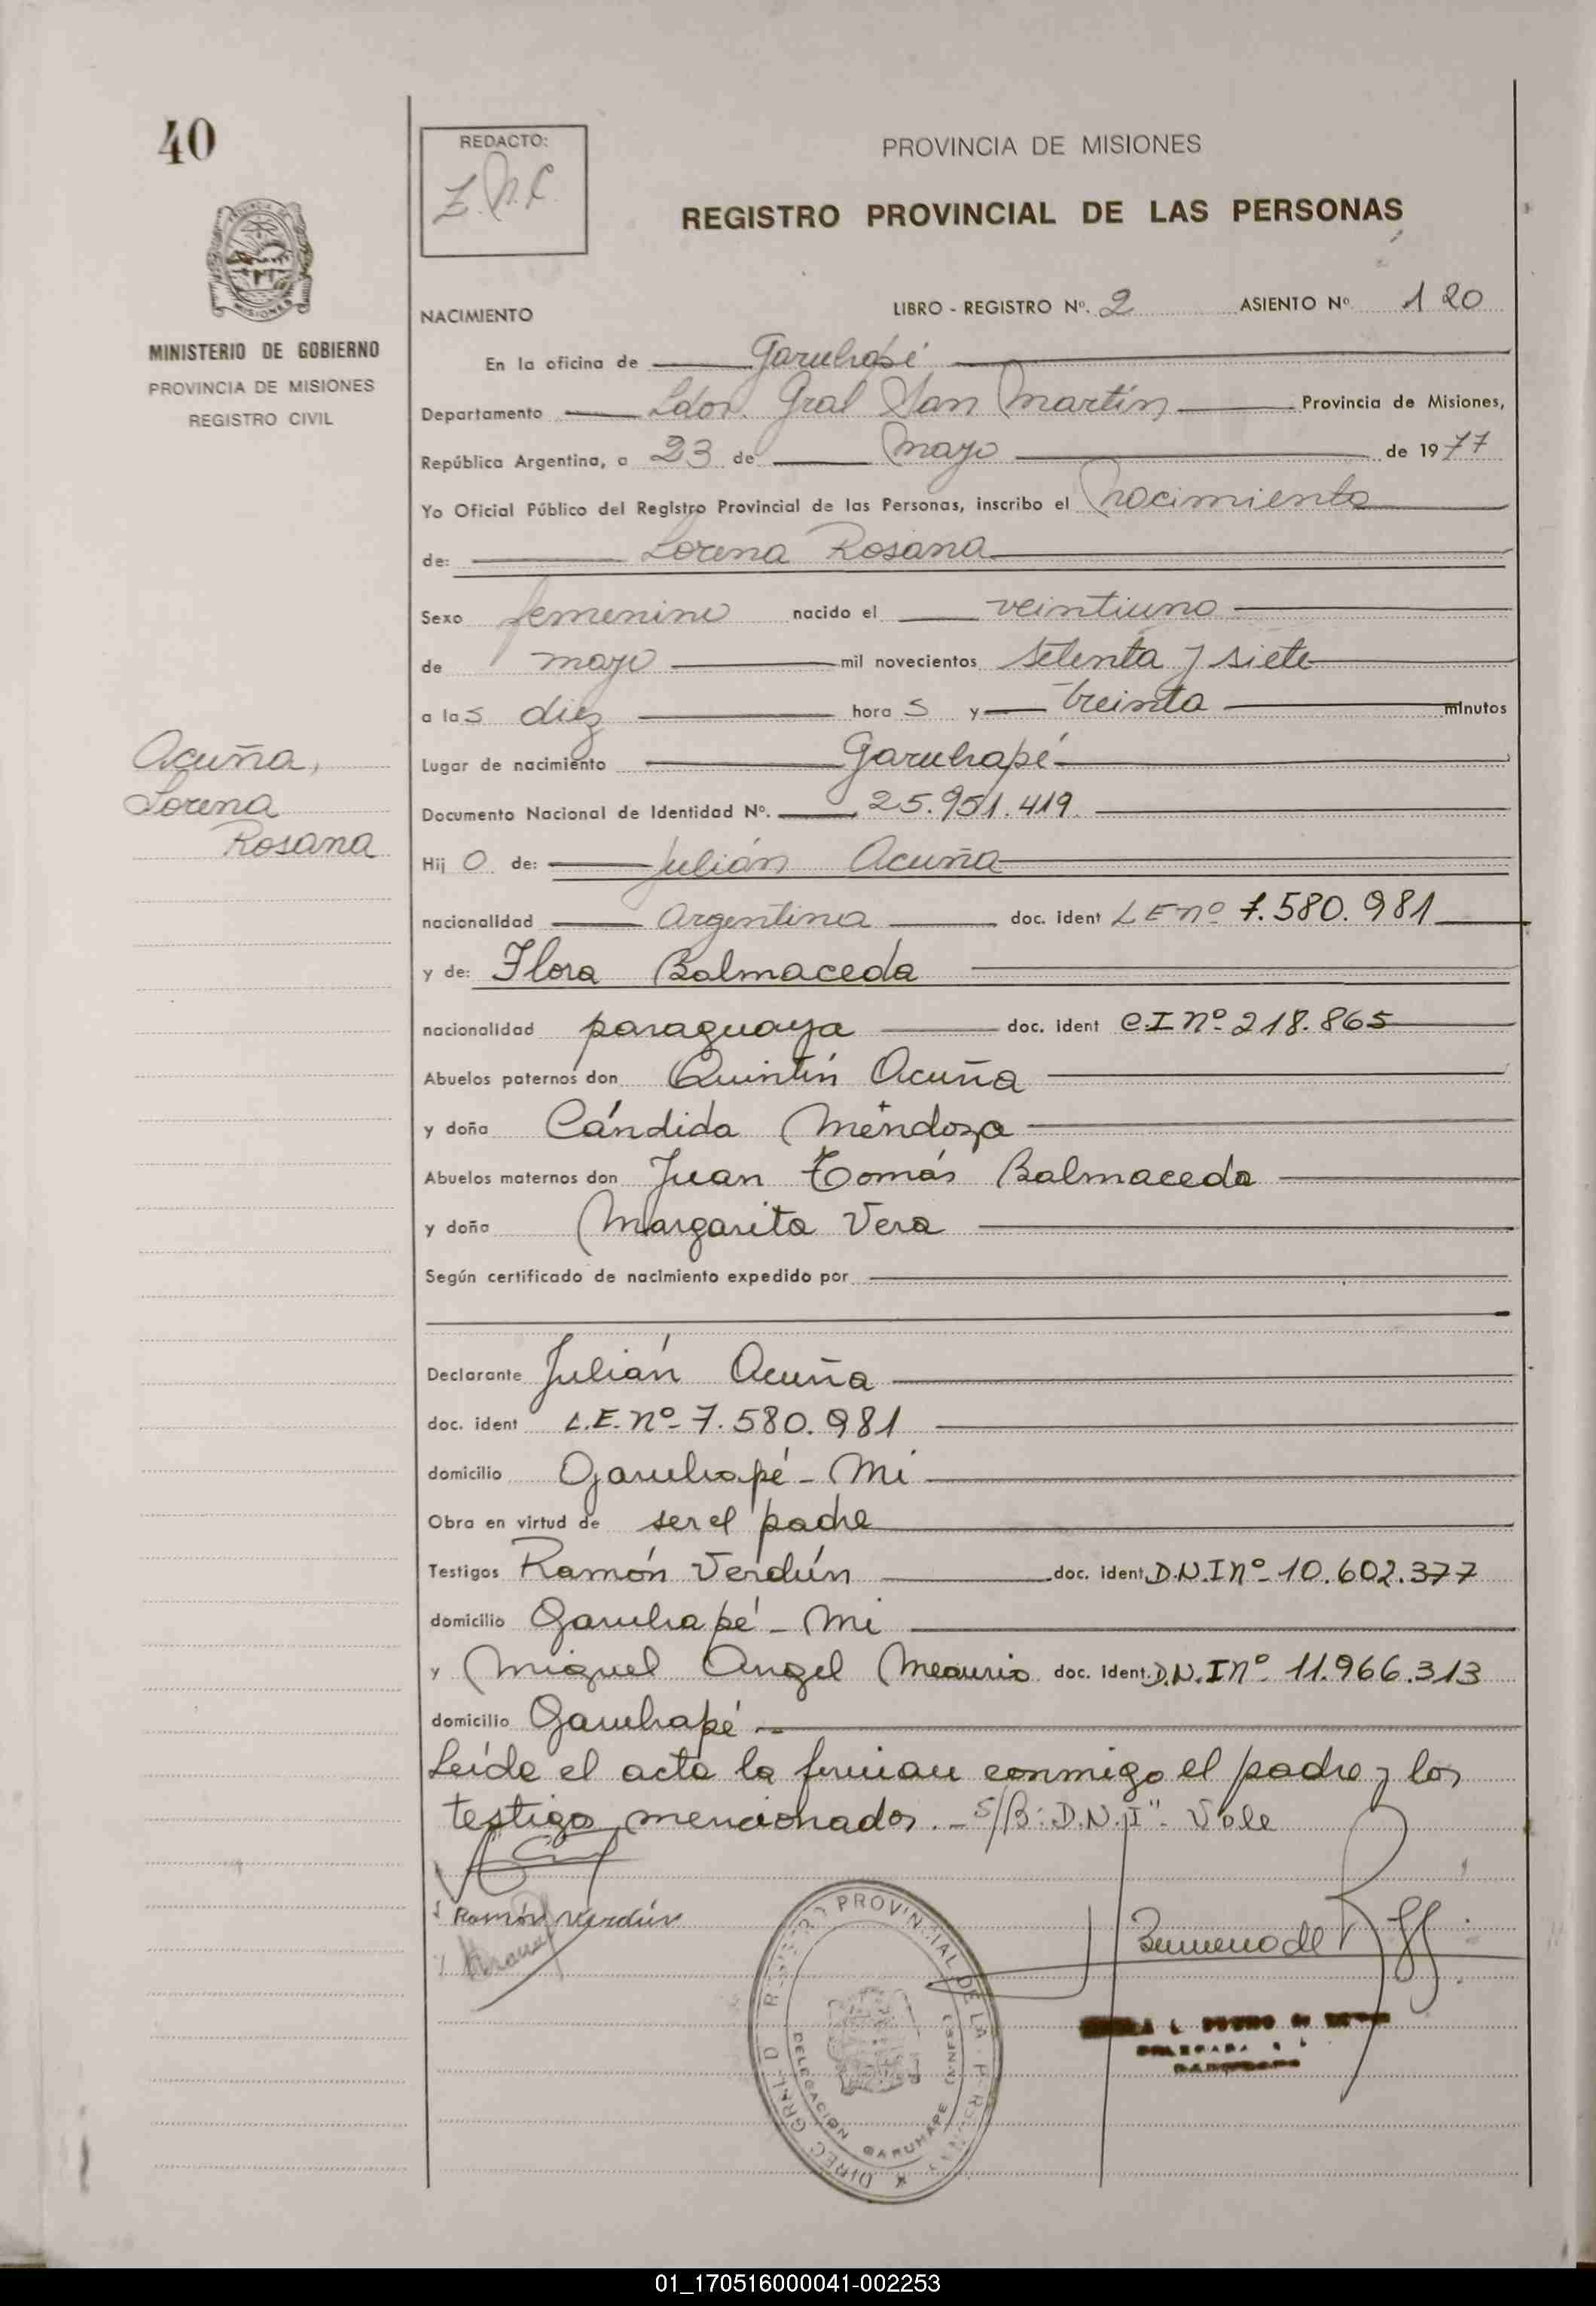 40
REDACTO:
PROVINCIA DE MISIONES
REGISTRO PROVINCIAL DE LAS PERSONAS
MINISTERIO DE GOBIERNO
PROVINCIA DE MISIONES
REGISTRO CIVIL
NACIMIENTO LIBRO - REGISTRO Nº. 2 ASIENTO Nº 120
En la oficina de Garuhapé
Departamento Ldor. Gral San Martín Provincia de Misiones,
República Argentina, a 23 de mayo de 1977
Yo Oficial Público del Registro Provincial de las Personas, inscribo el nacimiento
de: Lorena Rosana
Sexo femenino nacido el veintiuno
de mayo mil novecientos setenta y siete
a las diez horas y treinta minutos
Acuña,
Lorena
Rosana
Lugar de nacimiento Garuhapé
Documento Nacional de Identidad Nº. 25.951.419
Hij O de: Julián Acuña
nacionalidad Argentina doc. ident LE nº 7.580.981
y de: Flora Balmaceda
nacionalidad paraguaya doc. ident C.I nº 218.865
Abuelos paternos don Quintín Acuña
y doña Cándida Méndoza
Abuelos maternos don Juan Tomás Balmaceda
y doña Margarita Vera
Según certificado de nacimiento expedido por
Declarante Julián Acuña
doc. ident L.E. nº 7.580.981
domicilio Garuhapé - Mi
Obra en virtud de ser el padre
Testigos Ramón Verdún doc. ident D.N.I nº 10.602.377
domicilio Garuhapé - Mi
y Miguel Angel Meaurio doc. ident. D.N.I nº 11.966.313
domicilio Garuhapé
Leída el acta la firman conmigo el padre y los
testigos mencionados. - S/B: D.N.I" Vale
Ramón Verdún
DIREC. GRAL. D REGISTRO PROVINCIAL DE LA
DELEGACION GARUHAPE (MNES.)
01_170516000041-002253